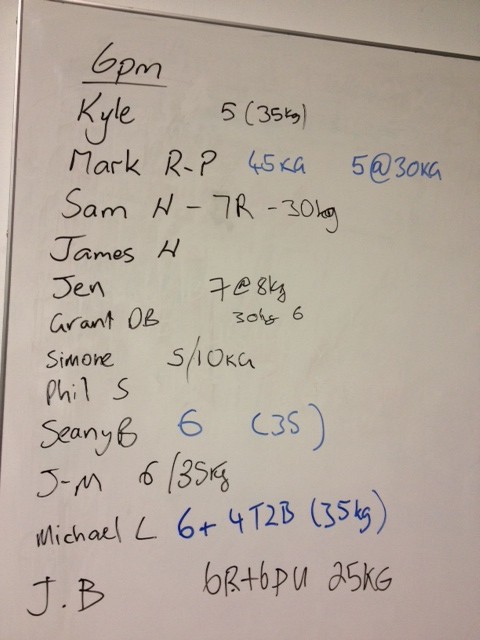 6pm
Kyle 5 (35kg)
Mark R-P 45KG 5@30KG
Sam H - 7R - 30kg
James H
Jen 7@8kg
Grant OB 30kg 6
Simone 5/10KG
Phil S
Seany B 6 (35)
J-M 6/35kg
Michael L 6+4T2B (35kg)
J.B 6R+6PU 25KG